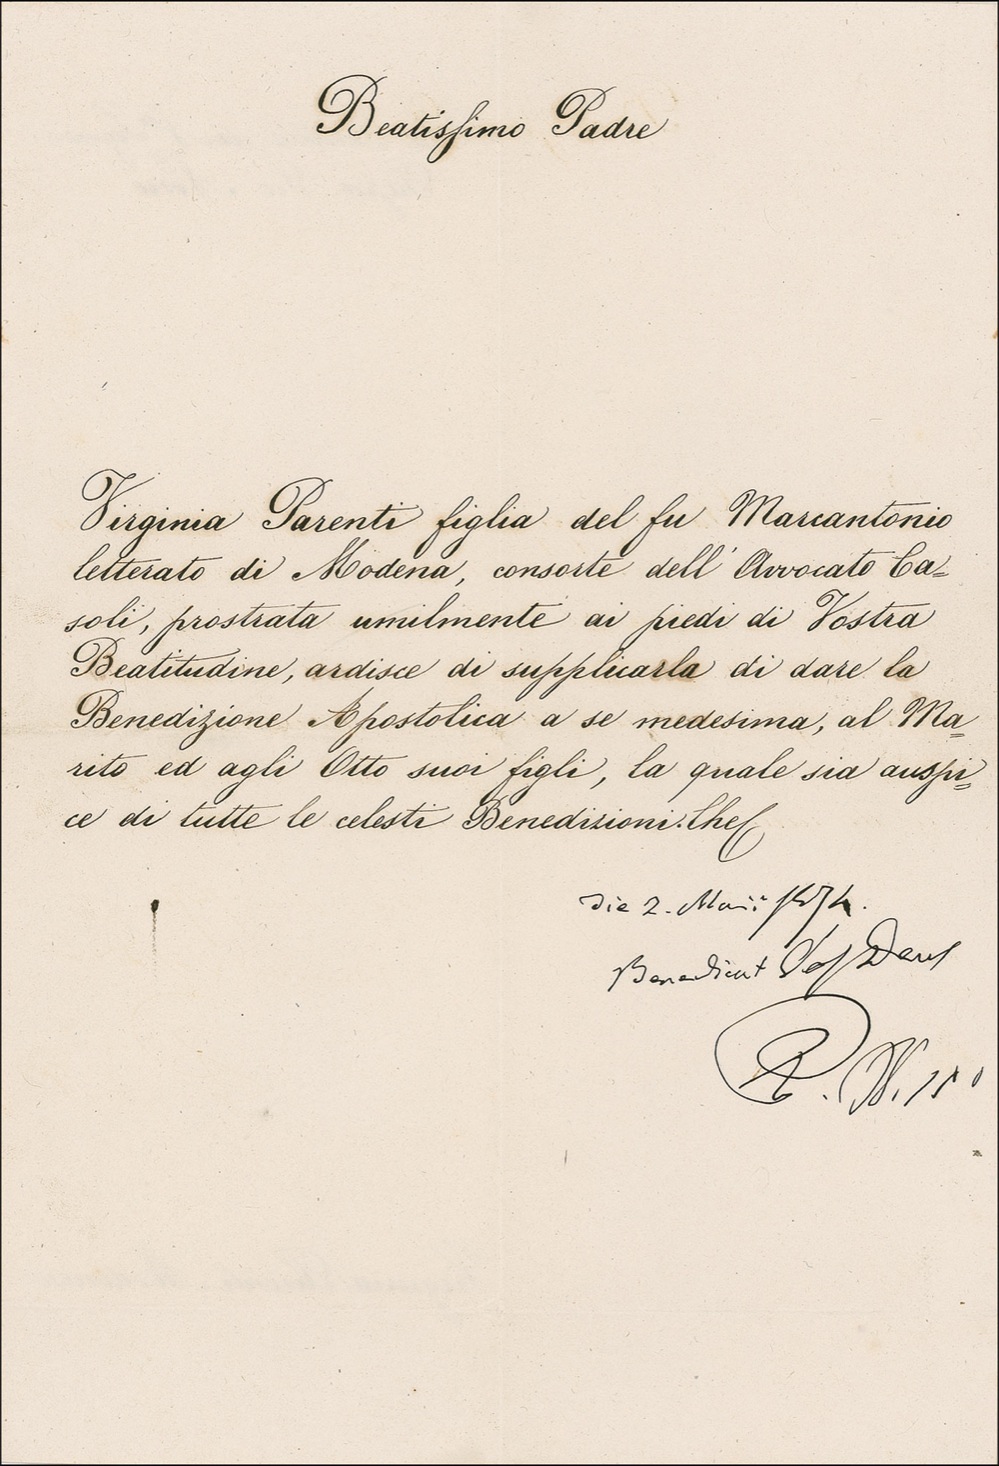 Beatissimo Padre
Virginia Parenti figlia del fu Marcantonio
letterato di Modena, consorte dell' Avvocato Ca=
soli, prostrata umilmente ai piedi di Vostra
Beatitudine, ardisce di supplicarla di dare la
Benedizione Apostolica a se medesima, al Ma=
rito ed agli Otto suoi figli, la quale sia auspi=
ce di tutte le celesti Benedizioni. Che
Die 2. Maii 1874.
Benedicat Vos Deus